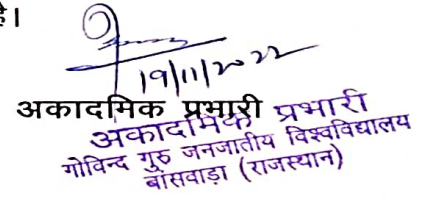 है।
19/11/2022
अकादमिक प्रभारी
अकादमिक प्रभारी
गोविन्द गुरु जनजातीय विश्वविद्यालय
बांसवाड़ा (राजस्थान)